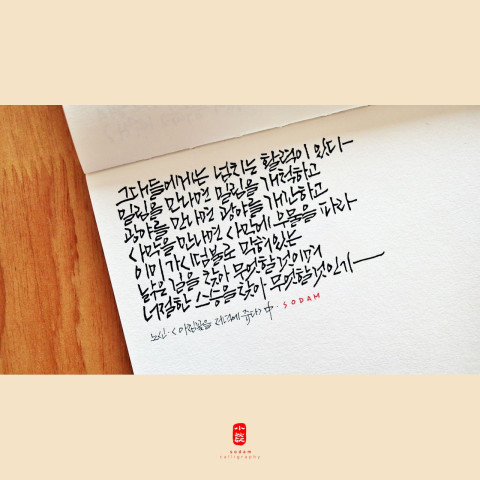 그대들에게는 넘치는 활력이 있다
밀림을 만나면 밀림을 개척하고
광야를 만나면 광야를 개간하고
사막을 만나면 사막에 우물을 파라
이미 가시덤불로 막혀있는
낡은 길을 찾아 무엇할것이며
너절한 스승을 찾아 무엇할것인가
노신·<아침꽃을 저녁에 줍다> 中 · SODAM
sodam
calligraphy